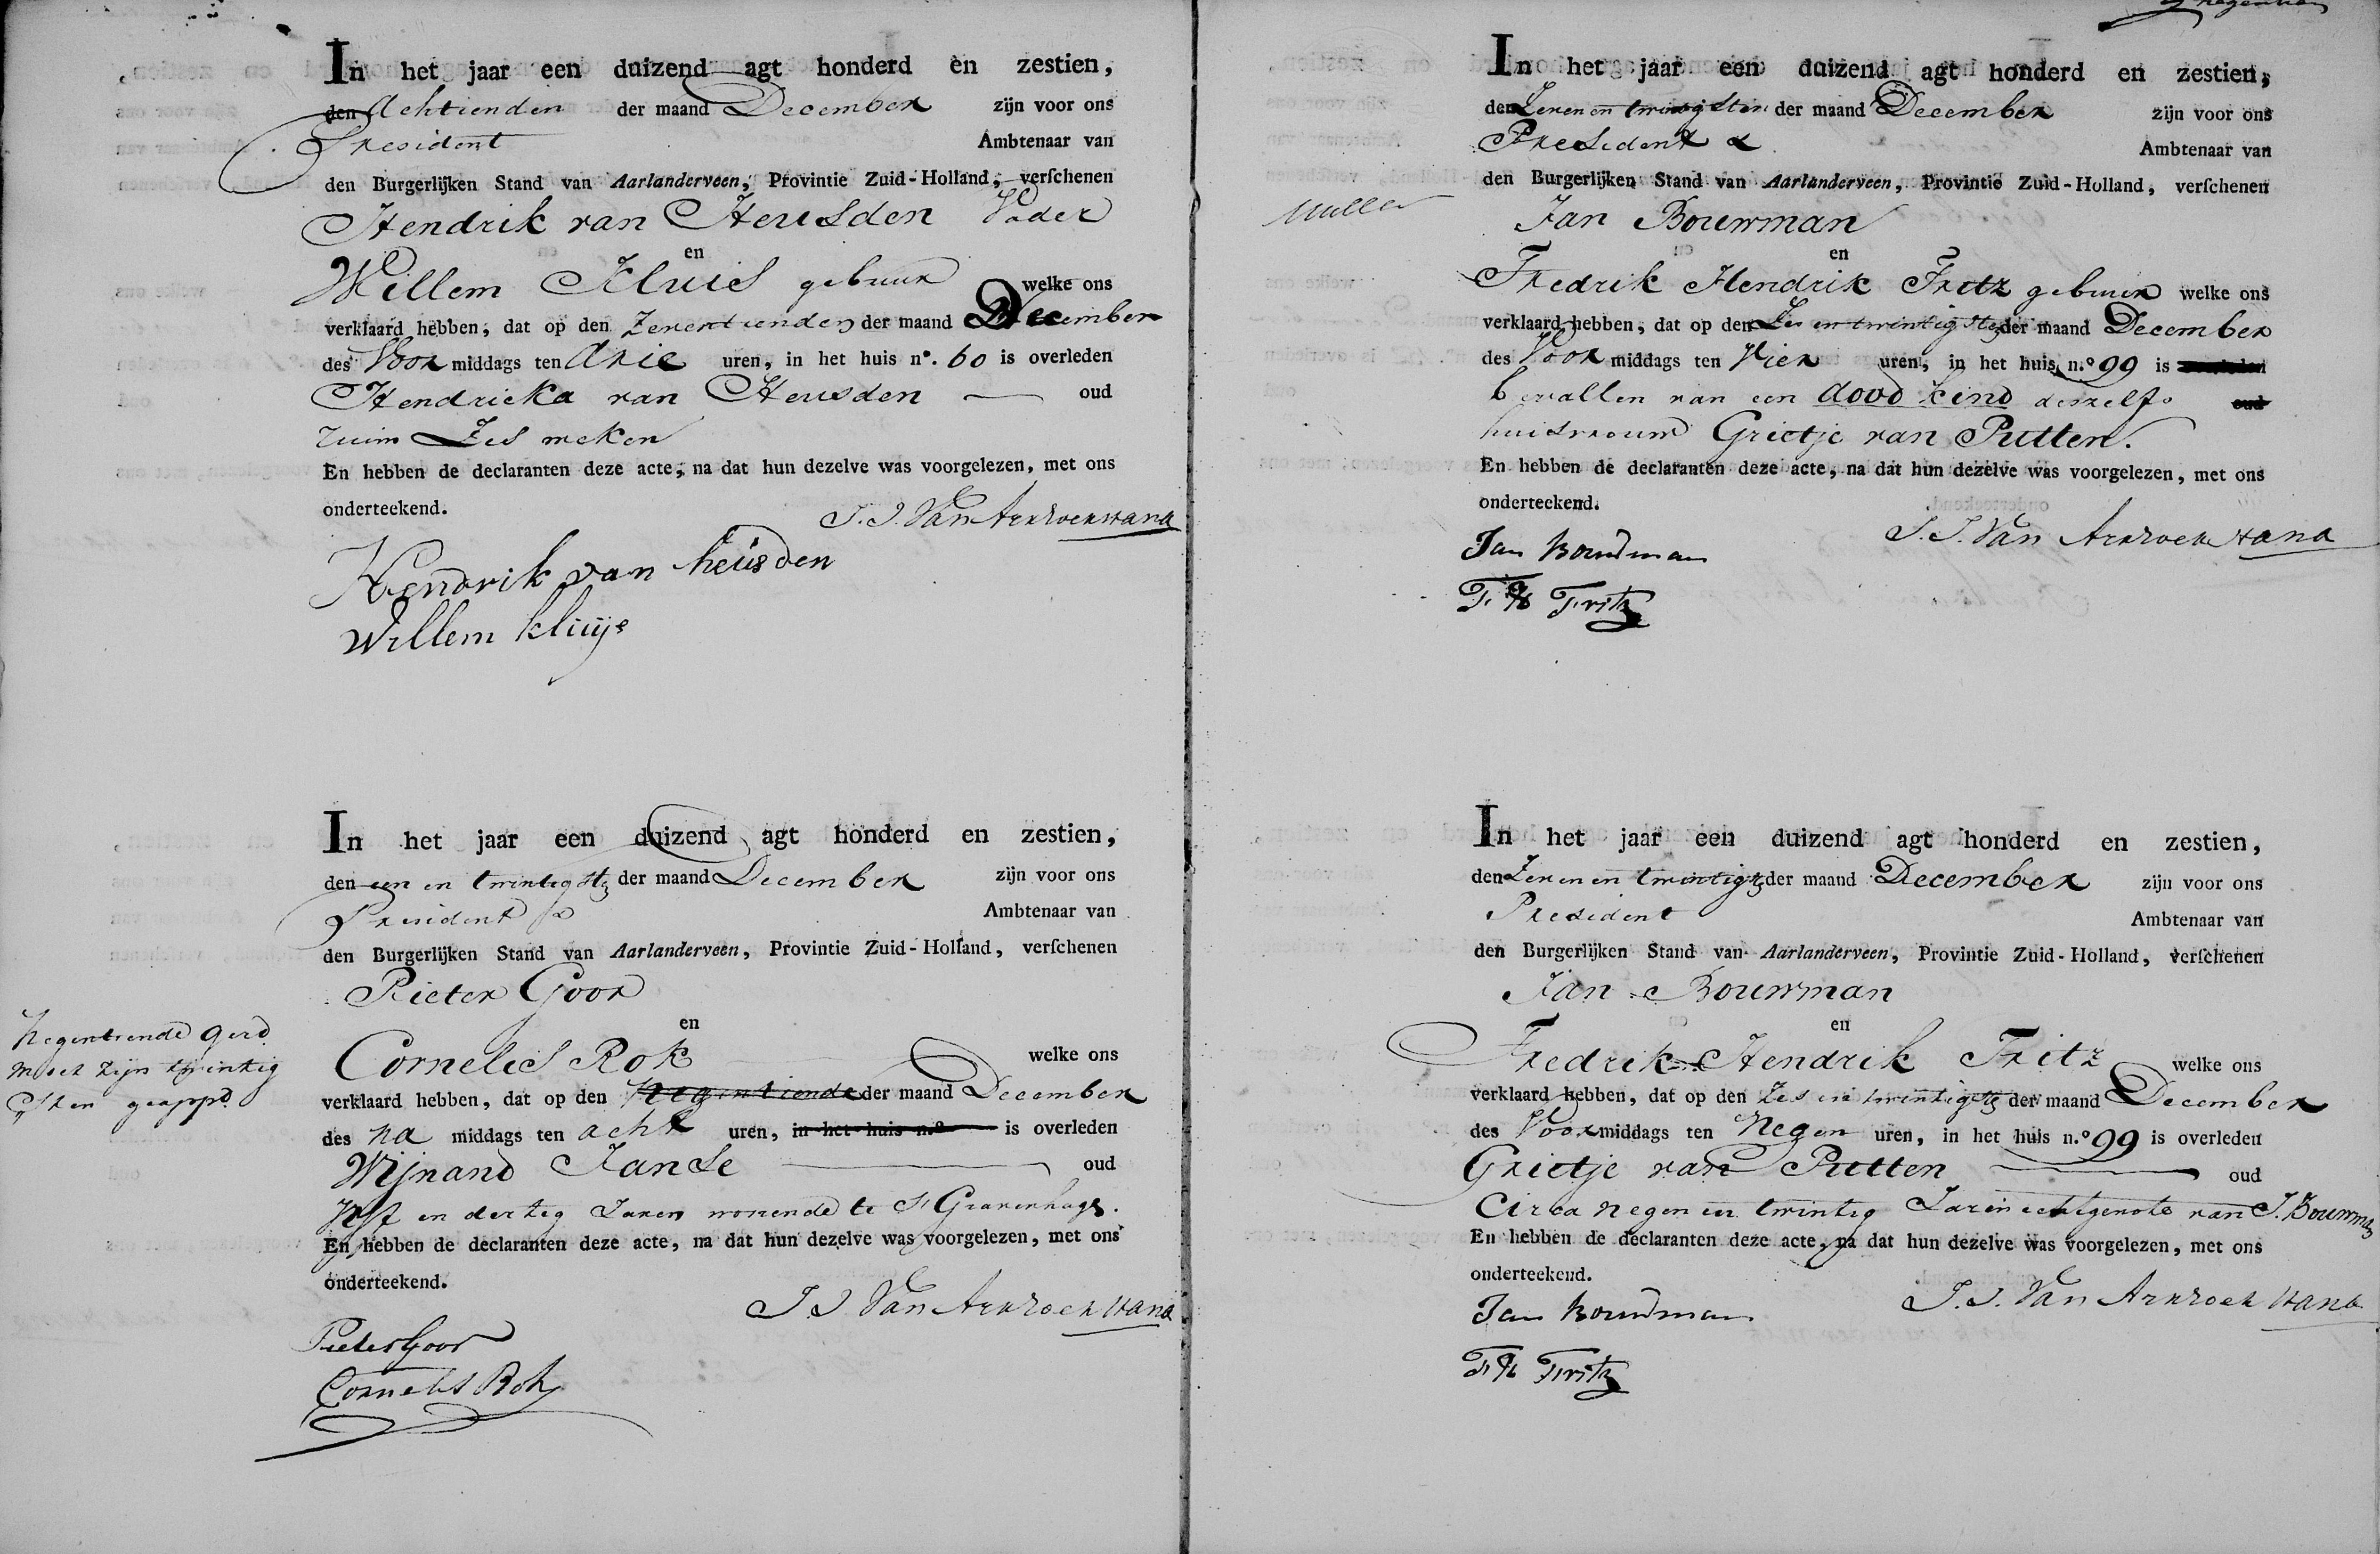 In het jaar een duizend agt honderd en zestien,
den Achtienden der maand December zijn voor ons
President Ambtenaar van
den Burgerlijken Stand van Aarlanderveen, Provintie Zuid-Holland, verschenen
Hendrik van Heusden Vader
en
Willem Kluis gebuur welke ons
verklaard hebben, dat op den Zeventienden der maand December
des Voor middags ten drie uren, in het huis n°. 60 is overleden
Hendricka van Heusden oud
ruim Zes weken
En hebben de declaranten deze acte, na dat hun dezelve was voorgelezen, met ons
onderteekend.
Hendrik van heusden
Willem kluijs
In het jaar een duizend agt honderd en zestien,
den een en twintigste der maand December zijn voor ons
President Ambtenaar van
den Burgerlijken Stand van Aarlanderveen, Provintie Zuid-Holland, verschenen
Pieter Goor
en
Cornelis Rok welke ons
verklaard hebben, dat op den Negentiende der maand December
des na middags ten acht uren, in het huis n.° is overleden
Wijnand Janse oud
Vijf en dertig Jaren wonende te S Gravenhage.
En hebben de declaranten deze acte, na dat hun dezelve was voorgelezen, met ons
onderteekend.
Pieter Goor
Cornelis Rok
Negentiende
moet zijn twintig
sten geappd.
In het jaar een duizend agt honderd en zestien,
den Zeven en twintigsten der maand December zijn voor ons
President Ambtenaar van
den Burgerlijken Stand van Aarlanderveen, Provintie Zuid-Holland, verschenen
Jan Bouwman
en
Fredrik Hendrik Fritz gebuur welke ons
verklaard hebben, dat op den Zes en twintigste der maand December
des Voor middags ten Vier uren, in het huis n.° 99 is
bevallen van een dood kind deszelfs oud
huisvrouw Grietje van Putten.
En hebben de declaranten deze acte, na dat hun dezelve was voorgelezen, met ons
onderteekend.
Jan Bouwman
F H Fritz
In het jaar een duizend agt honderd en zestien,
den Zeven en twintigste der maand December zijn voor ons
President Ambtenaar van
den Burgerlijken Stand van Aarlanderveen, Provintie Zuid-Holland, verschenen
Jan Bouwman
en
Fredrik Hendrik Fritz welke ons
verklaard hebben, dat op den Zes en twintigste der maand December
des Voor middags ten Negen uren, in het huis n.° 99 is overleden
Grietje van Putten oud
Circa negen en twintig Jaren echtgenote van J. Bouwman
En hebben de declaranten deze acte, na dat hun dezelve was voorgelezen, met ons
onderteekend.
Jan Bouwman
F H Fritz